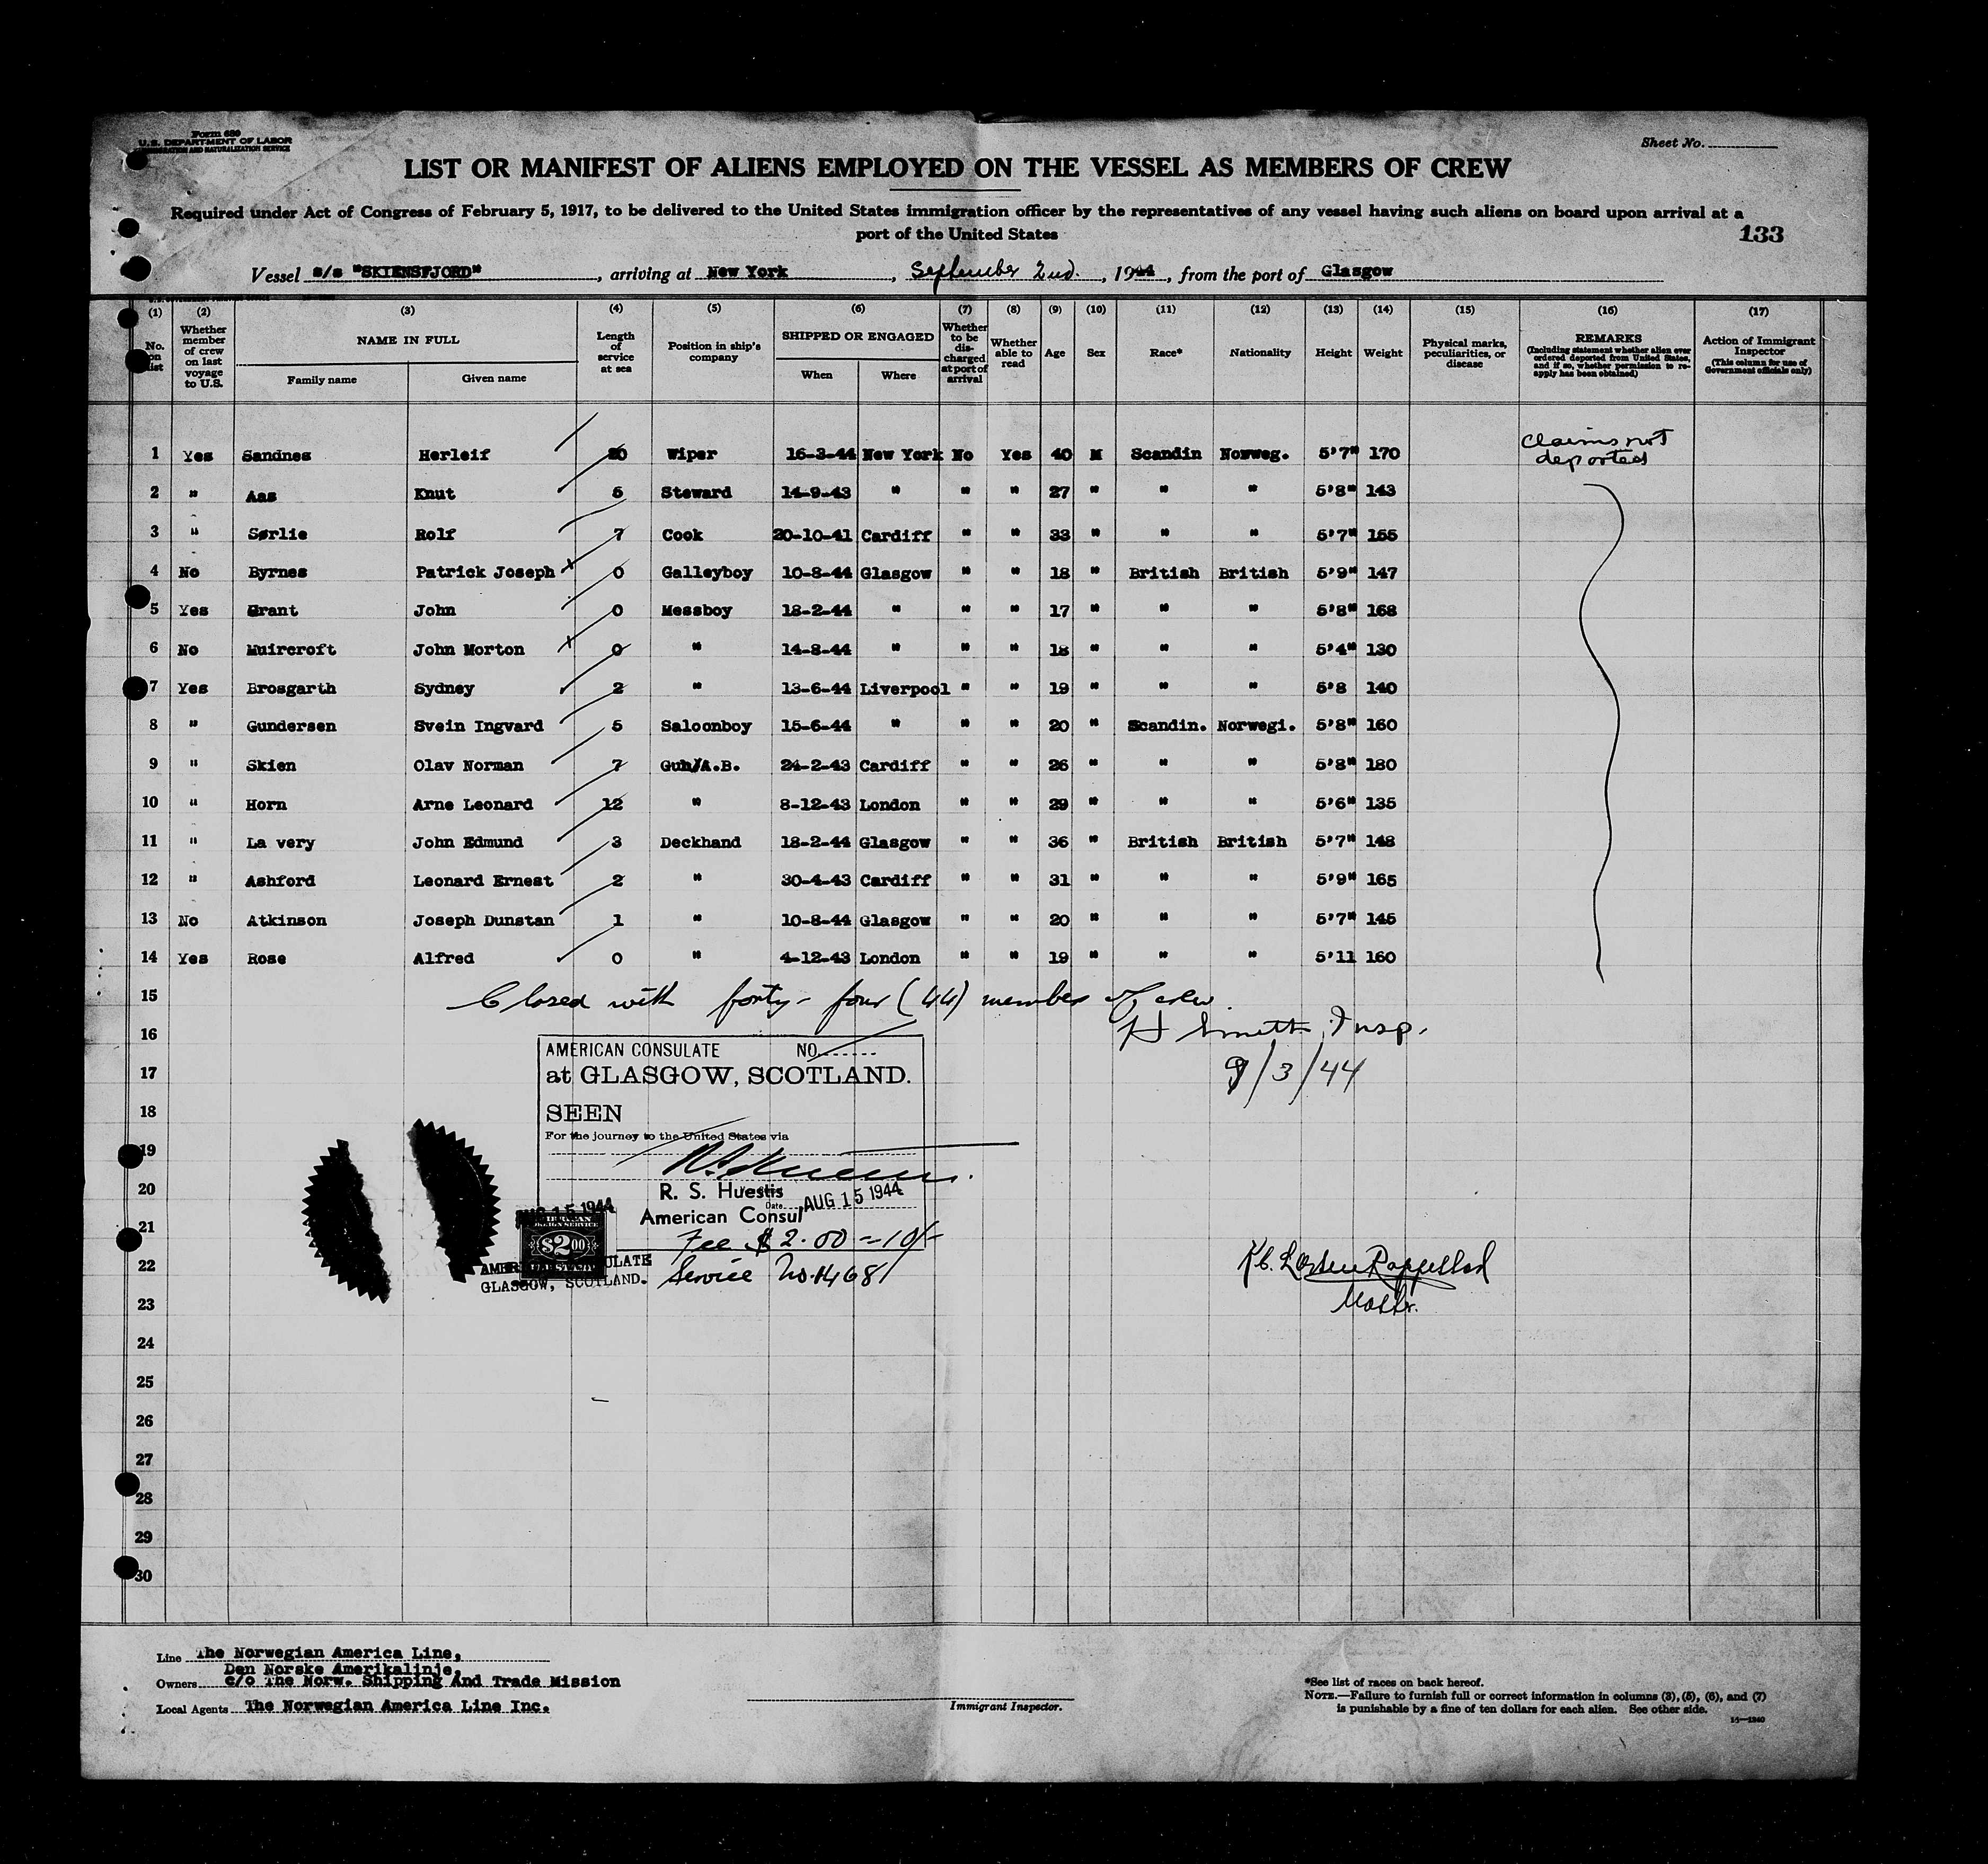 Form 680
U.S. DEPARTMENT OF LABOR
IMMIGRATION AND NATURALIZATION SERVICE
Sheet No.
LIST OR MANIFEST OF ALIENS EMPLOYED ON THE VESSEL AS MEMBERS OF CREW
Required under Act of Congress of February 5, 1917, to be delivered to the United States immigration officer by the representatives of any vessel having such aliens on board upon arrival at a
port of the United States
133
Vessel s/s "SKIENSFJORD", arriving at New York, September 2nd., 1944, from the port of Glasgow
(1) (2) (3) (4) (5) (6) (7) (8) (9) (10) (11) (12) (13) (14) (15) (16) (17)
No. on list
Whether member of crew on last voyage to U.S.
NAME IN FULL
Family name Given name
Length of service at sea
Position in ship's company
SHIPPED OR ENGAGED
When Where
Whether to be discharged at port of arrival
Whether able to read
Age
Sex
Race*
Nationality
Height
Weight
Physical marks, peculiarities, or disease
REMARKS
(Including statement whether alien ever ordered deported from United States, and if so, whether permission to reapply has been obtained)
Action of Immigrant Inspector
(This column for use of Government officials only)
1 Yes Sandnes Herleif 20 Wiper 16-3-44 New York No Yes 40 M Scandin Norweg. 5'7" 170 Claims not deported
2 " Aas Knut 5 Steward 14-9-43 " " " 27 " " " 5'8" 143
3 " Sørlie Rolf 7 Cook 20-10-41 Cardiff " " 33 " " " 5'7" 155
4 No Byrnes Patrick Joseph 0 Galleyboy 10-8-44 Glasgow " " 18 " British British 5'9" 147
5 Yes Grant John 0 Messboy 18-2-44 " " " 17 " " " 5'8" 168
6 No Muircroft John Morton 0 " 14-8-44 " " " 18 " " " 5'4" 130
7 Yes Brosgarth Sydney 2 " 13-6-44 Liverpool " " 19 " " " 5'8 140
8 " Gundersen Svein Ingvard 5 Saloonboy 15-6-44 " " " 20 " Scandin. Norwegi. 5'8" 160
9 " Skien Olav Norman 7 Gun/A.B. 24-2-43 Cardiff " " 26 " " " 5'8" 180
10 " Horn Arne Leonard 12 " 8-12-43 London " " 29 " " " 5'6" 135
11 " La very John Edmund 3 Deckhand 18-2-44 Glasgow " " 36 " British British 5'7" 148
12 " Ashford Leonard Ernest 2 " 30-4-43 Cardiff " " 31 " " " 5'9" 165
13 No Atkinson Joseph Dunstan 1 " 10-8-44 Glasgow " " 20 " " " 5'7" 145
14 Yes Rose Alfred 0 " 4-12-43 London " " 19 " " " 5'11 160
15 Closed with forty-four (44) member of crew
16 H Smith, Insp.
AMERICAN CONSULATE NO.
17 at GLASGOW, SCOTLAND.
9/3/44
18 SEEN
For the journey to the United States via
19
20 R. S. Huestis
Date AUG 15 1944
AUG 15 1944
21 American Consul
$2.00
Fee $2.00 = 10/-
22 AMERICAN CONSULATE
GLASGOW, SCOTLAND.
Service No. 14681
23 Master.
24
25
26
27
28
29
30
Line The Norwegian America Line,
Den Norske Amerikalinje,
Owners c/o The Norw. Shipping And Trade Mission
Local Agents The Norwegian America Line Inc.
Immigrant Inspector.
*See list of races on back hereof.
NOTE.—Failure to furnish full or correct information in columns (3), (5), (6), and (7)
is punishable by a fine of ten dollars for each alien. See other side.